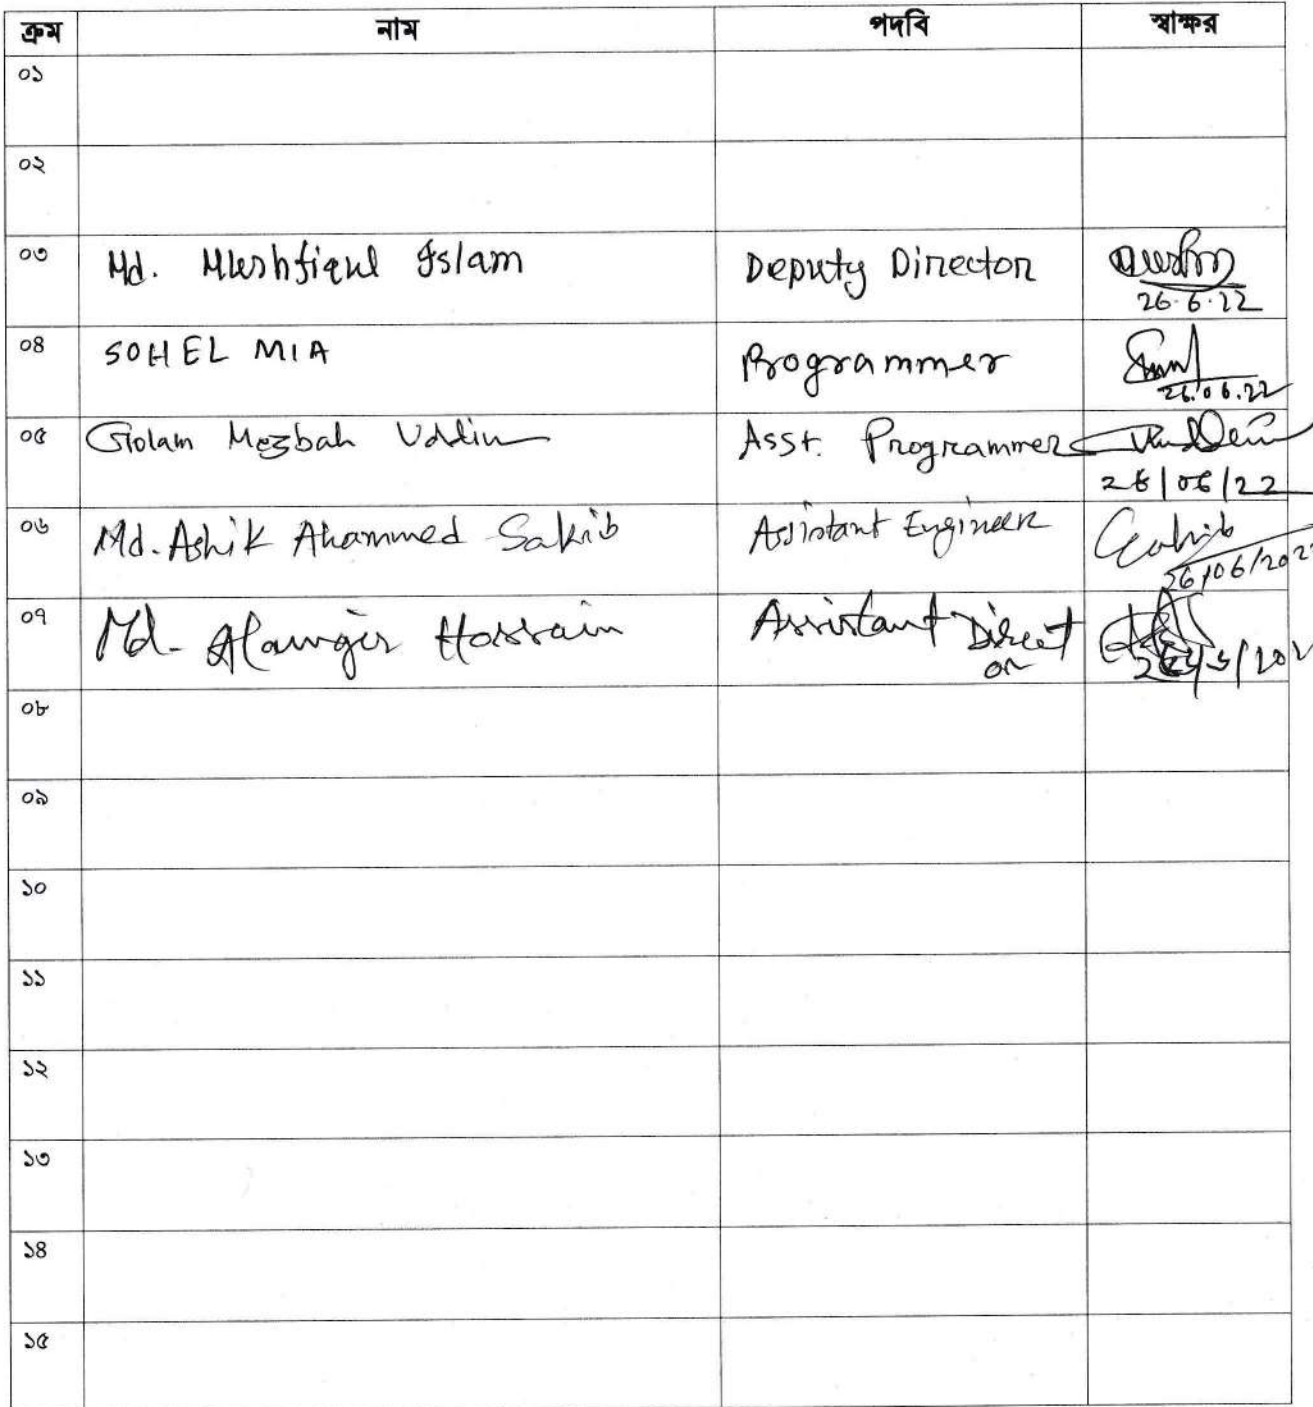 ক্রম নাম পদবি স্বাক্ষর
০১
০২
০৩ Md. Mushfiqul Islam Deputy Director
26.6.22
০৪ SOHEL MIA Programmer
26.06.22
০৫ Golam Mezbah Uddin Asst. Programmer
26/06/22
০৬ Md. Ashik Ahammed Sakib Assistant Engineer Sakib
26/06/202
০৭ Md. Alamgir Hossain Assistant Direct
or
০৮
০৯
১০
১১
১২
১৩
১৪
১৫